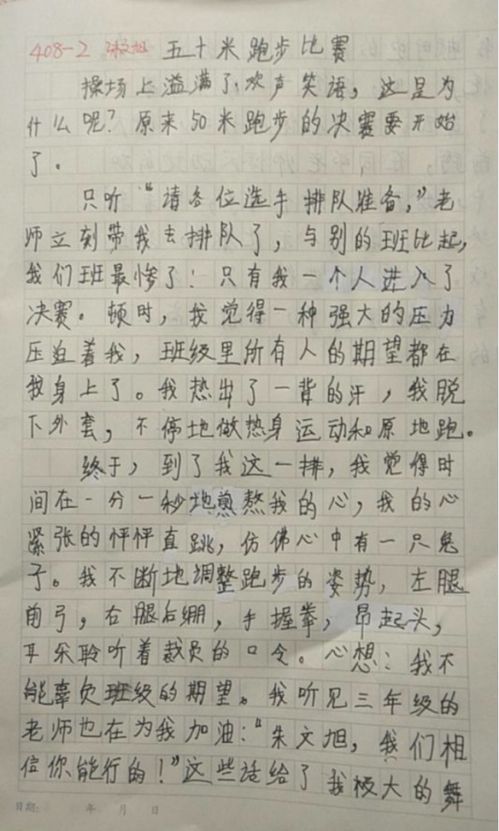 408-2 五十米跑步比赛
操场上溢满了欢声笑语，这是为
什么呢？原来50米跑步的决赛要开始
了。
只听“请各位选手排队准备，”老
师立刻带我去排队了，与别的班比起，
我们班最惨了！只有我一个人进入了
决赛。顿时，我觉得一种强大的压力
压迫着我，班级里所有人的期望都在
我身上了。我热出了一背的汗，我脱
下外套，不停地做热身运动和原地跑。
终于，到了我这一排，我觉得时
间在一分一秒地煎熬我的心，我的心
紧张的怦怦直跳，仿佛心中有一只兔
子。我不断地调整跑步的姿势，左腿
前弓，右腿后绷，手握拳，昂起头，
耳朵聆听着裁员的口令。心想：我不
能辜负班级的期望。我听见三年级的
老师也在为我加油：“朱文旭，我们相
信你能行的！”这些话给了我极大的舞
日期： 年 月 日